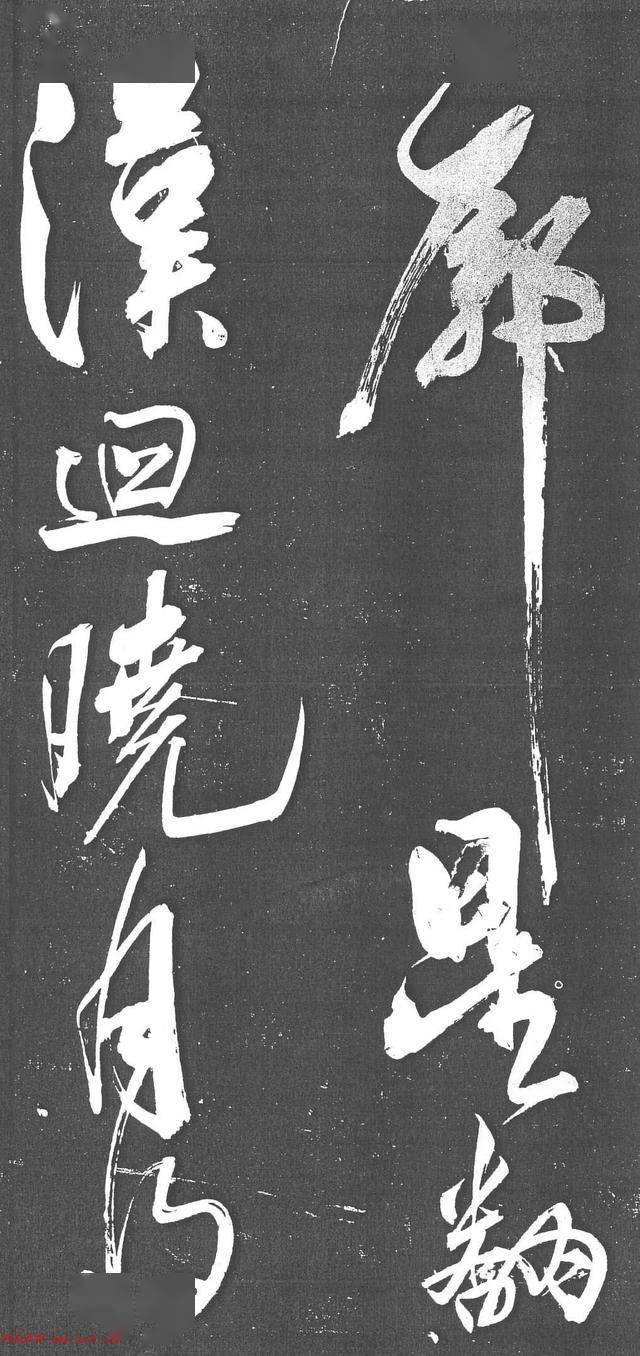 廓星翻
漢迴曉月